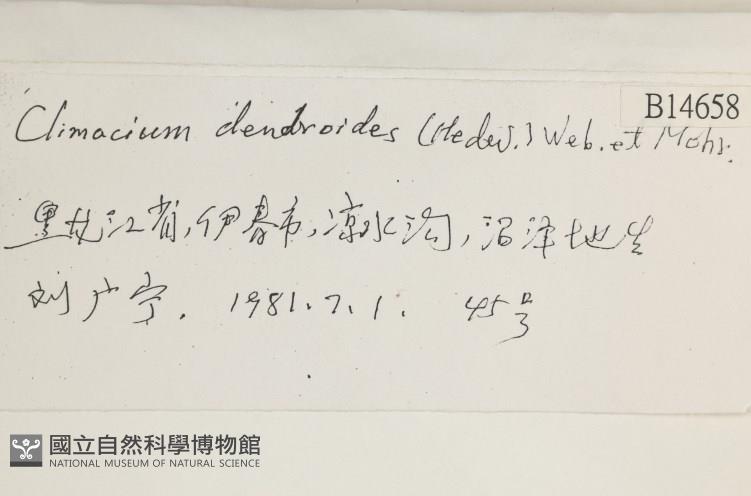 B14658
Climacium dendroides (Hedw.) Web. et Mohr.
黑龙江省,伊春市,凉水沟,沼泽地生
刘广宁. 1981.7.1. 45号
國立自然科學博物館
NATIONAL MUSEUM OF NATURAL SCIENCE